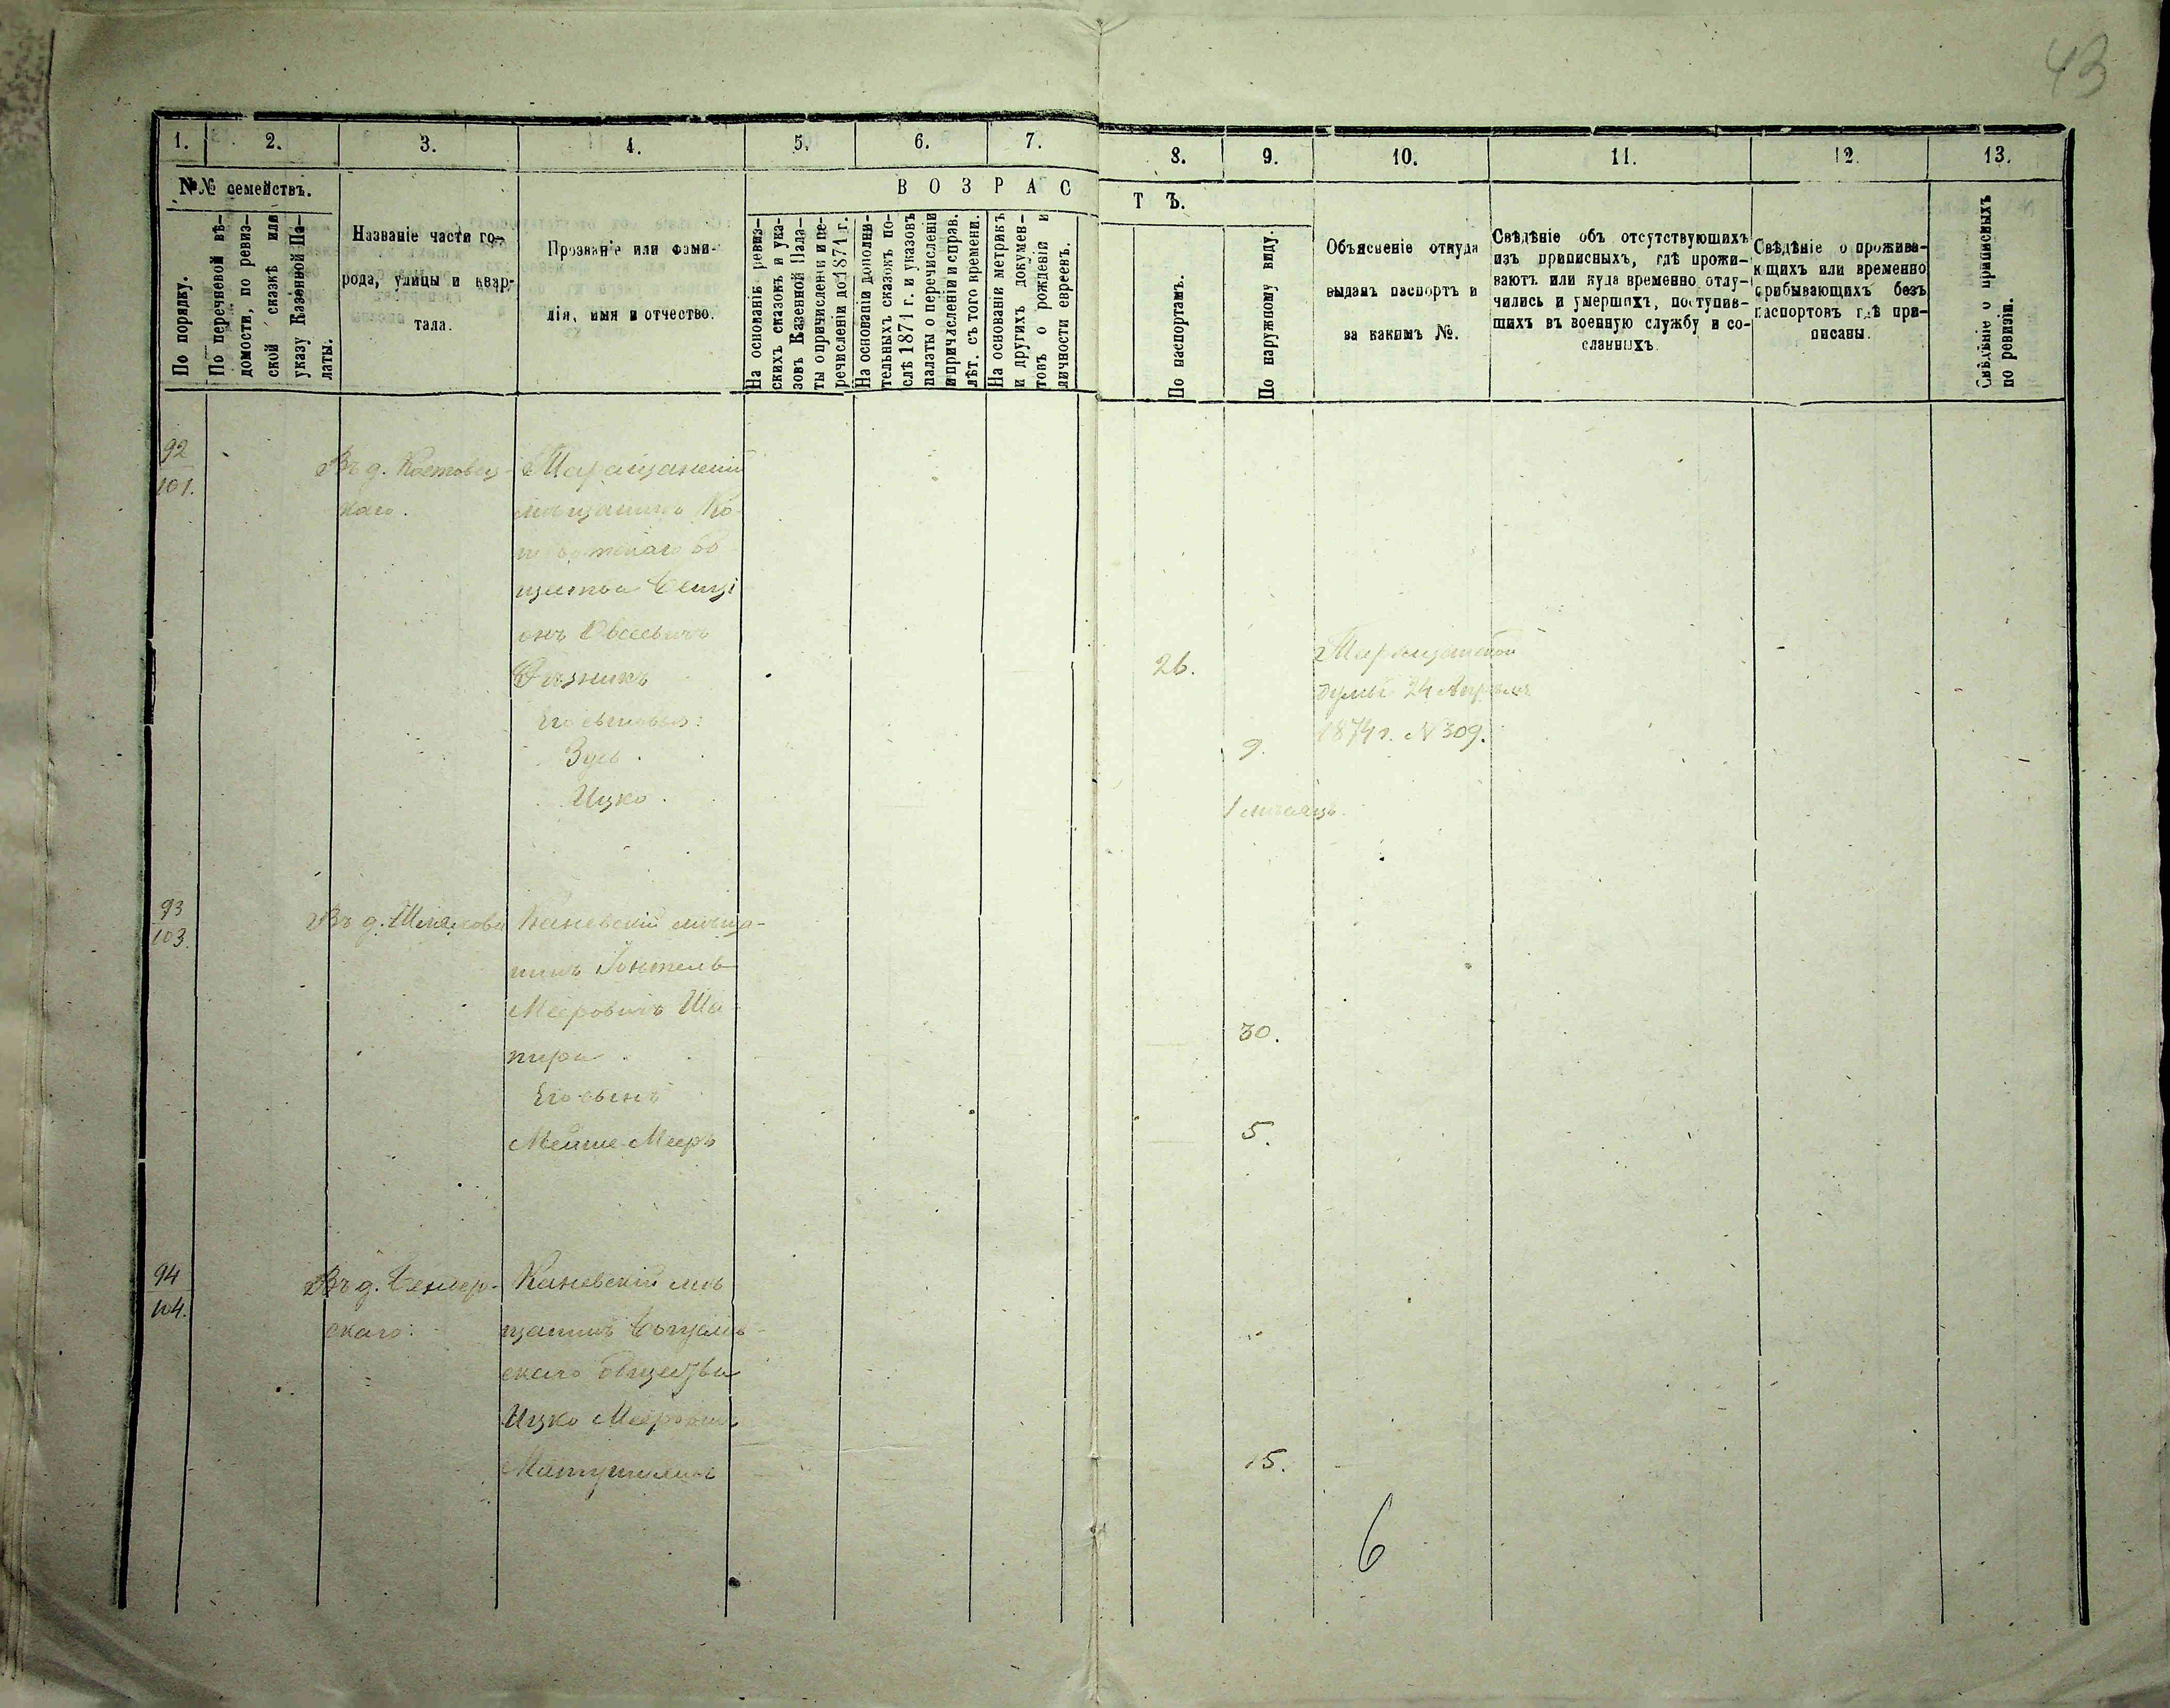 43
1. 2. 3. 4. 5. 6. 7. 8. 9. 10. 11. 12. 13.
№№ семействъ.
По порядку.
По перечневой вѣ-
домости, по ревиз-
ской сказкѣ или
указу Казенной Па-
латы.
Названіе части го-
рода, улицы и квар-
тала.
Прозваніе или фами-
лія, имя и отчество.
ВОЗРАСТЪ.
На основаніи ревиз-
скихъ сказокъ и ука-
зовъ Казенной Пала-
ты о причисленіи и пе-
речисленіи до 1871 г.
На основаніи дополни-
тельныхъ сказокъ по-
слѣ 1871 г. и указовъ
палаты о перечисленіи
и причисленіи и справ.
лѣт. съ того времени.
На основаніи метрикъ
и другихъ докумен-
товъ о рожденіи и
личности евреевъ.
По паспортамъ.
По наружному виду.
Объясненіе откуда
выданъ паспортъ и
за какимъ №.
Свѣдѣніе объ отсутствующихъ
изъ приписныхъ, гдѣ прожи-
ваютъ или куда временно отлу-
чились и умершихъ, поступив-
шихъ въ военную службу и со-
сланныхъ.
Свѣдѣніе о прожива-
ющихъ или временно
прибывающихъ безъ
паспортовъ гдѣ при-
писаны.
Свѣдѣніе о приписныхъ
по ревизіи.
92
101.
Въ д.
каго.
Таращанскій
мѣщанинъ
щества
онъ Овсеевичъ
Рѣзникъ
26.
Таращанской
думы 24 Апрѣля
1874 г. № 309.
Его сыновья:
Зусь
9.
Ицко
1 мѣсяцъ.
93
103.
Въ д.
Каневскій мѣща-
нинъ
Мееровичъ Ша-
пира
30.
Его сынъ
Мейше-Мееръ
5.
94
104.
Въ д.
скаго.
Каневскій мѣ
щанинъ
скаго общества
Ицко Мееровичъ
15.
6